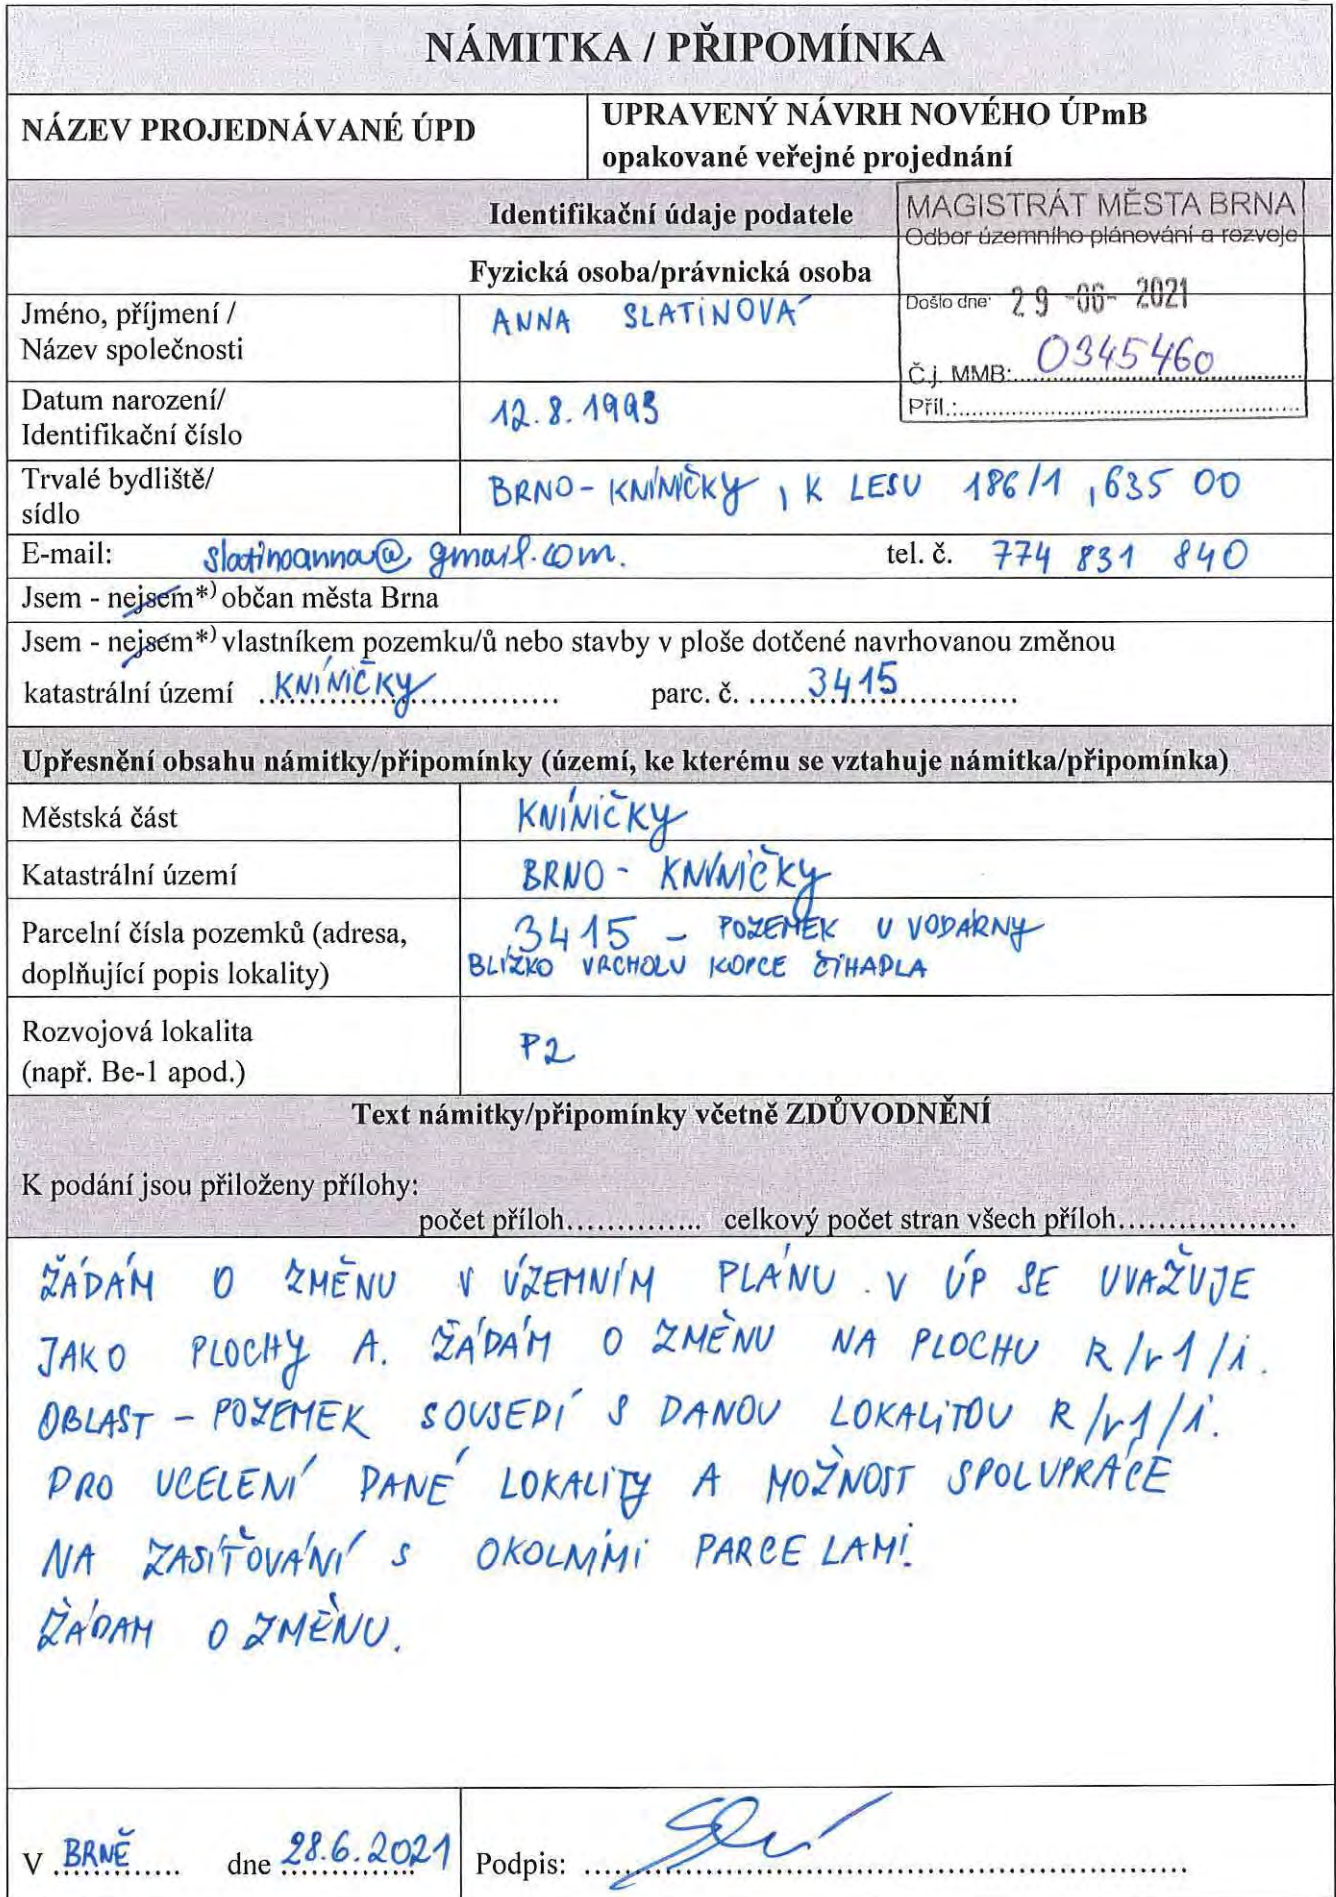 NÁMITKA / PŘIPOMÍNKA
NÁZEV PROJEDNÁVANÉ ÚPD
UPRAVENÝ NÁVRH NOVÉHO ÚPmB
opakované veřejné projednání
Identifikační údaje podatele
MAGISTRÁT MĚSTA BRNA
Odbor územního plánování a rozvoje
Došlo dne: 29 -06- 2021
Č.j. MMB: 0345460
Příl.:
Fyzická osoba/právnická osoba
Jméno, příjmení /
Název společnosti
ANNA SLATINOVÁ
Datum narození/
Identifikační číslo
12.8.1993
Trvalé bydliště/
sídlo
BRNO-KNÍNIČKY, K LESU 186/1, 635 00
E-mail: slatinoanna@gmail.com. tel. č. 774 831 840
Jsem - nejsem*) občan města Brna
Jsem - nejsem*) vlastníkem pozemku/ů nebo stavby v ploše dotčené navrhovanou změnou
katastrální území KNÍNIČKY parc. č. 3415
Upřesnění obsahu námitky/připomínky (území, ke kterému se vztahuje námitka/připomínka)
Městská část
KNÍNIČKY
Katastrální území
BRNO - KNÍNIČKY
Parcelní čísla pozemků (adresa,
doplňující popis lokality)
3415 - POZEMEK U VODÁRNY
BLÍZKO VRCHOLU KOPCE ČIHADLA
Rozvojová lokalita
(např. Be-1 apod.)
P2
Text námitky/připomínky včetně ZDŮVODNĚNÍ
K podání jsou přiloženy přílohy:
počet příloh.............. celkový počet stran všech příloh..................
ŽÁDÁM O ZMĚNU V ÚZEMNÍM PLÁNU. V ÚP SE UVAŽUJE
JAKO PLOCHY A. ŽÁDÁM O ZMĚNU NA PLOCHU R/r1/i.
OBLAST - POZEMEK SOUSEDÍ S DANOU LOKALITOU R/r1/i.
PRO UCELENÍ DANÉ LOKALITY A MOŽNOST SPOLUPRÁCE
NA ZASÍŤOVÁNÍ S OKOLNÍMI PARCELAMI.
ŽÁDAM O ZMĚNU.
V BRNĚ dne 28.6.2021
Podpis: